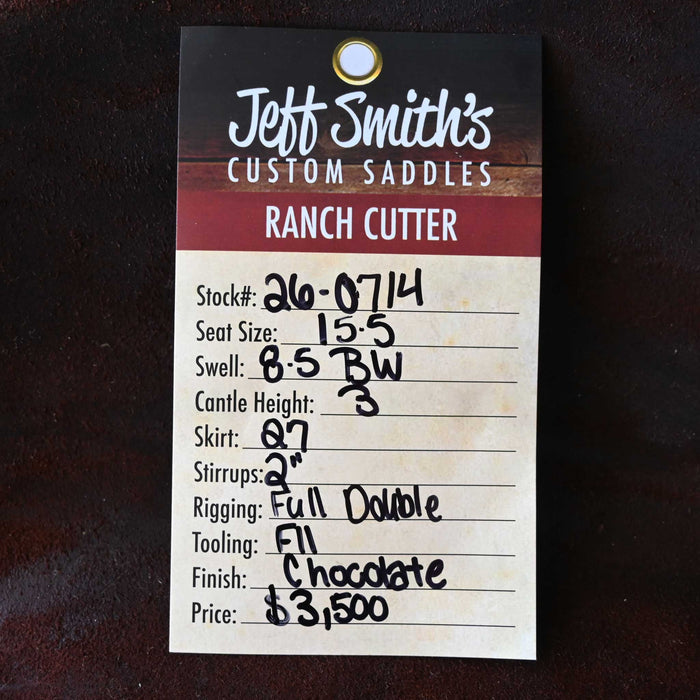 Jeff Smith's
CUSTOM SADDLES
RANCH CUTTER
Stock#: 26-0714
Seat Size: 15.5
Swell: 8.5 BW
Cantle Height: 3
Skirt: 27
Stirrups: 2"
Rigging: Full Double
Tooling: F11
Finish: Chocolate
Price: $3,500